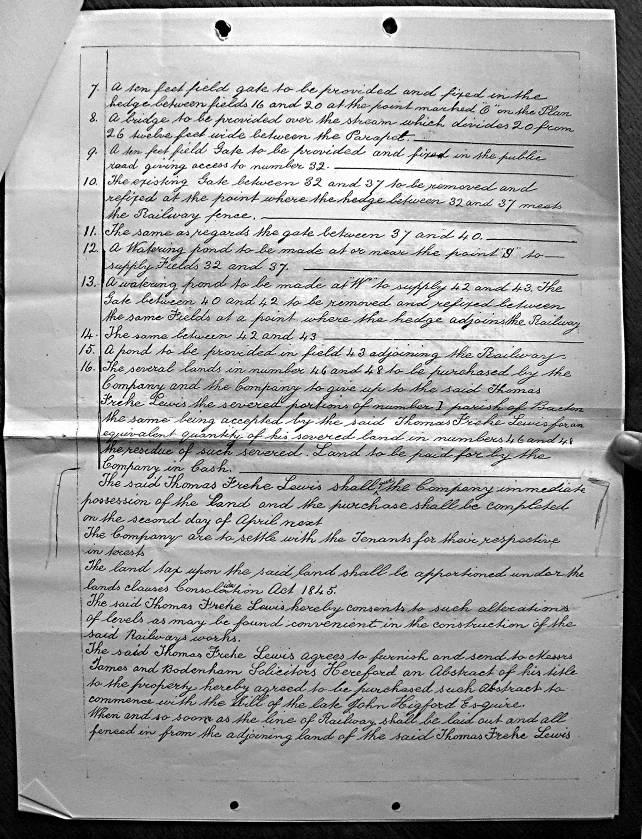 7. A ten feet field gate to be provided and fixed in the
hedge between fields 16 and 20 at the point marked "E" on the Plan
8. A bridge to be provided over the stream which divides 20 from
26 twelve feet wide between the Parapet.
9. A ten feet field Gate to be provided and fixed in the public
road giving access to number 32.
10. The existing Gate between 32 and 37 to be removed and
refixed at the point where the hedge between 32 and 37 meets
the Railway fence.
11. The same as regards the gate between 37 and 40.
12. A Watering pond to be made at or near the point to
supply Fields 32 and 37.
13. A watering pond to be made at "W" to supply 42 and 43. The
Gate between 40 and 42 to be removed and refixed between
the same Fields at a point where the hedge adjoins the Railway
14. The same between 42 and 43
15. A pond to be provided in field 43 adjoining the Railway
16. The several lands in number 46 and 48 to be purchased by the
Company and the Company to give up to the said Thomas
Freke Lewis the severed portions of number 1 parish of Barton
the same being accepted by the said Thomas Freke Lewis for an
equivalent quantity of his severed land in numbers 46 and 48
the residue of such severed Land to be paid for by the
Company in Cash.
The said Thomas Freke Lewis shall give the Company immediate
possession of the Land and the purchase shall be completed
on the second day of April next
The Company are to settle with the Tenants for their respective
interests
The land tax upon the said land shall be apportioned under the
lands clauses Consolidation Act 1845.
The said Thomas Freke Lewis hereby consents to such alterations
of levels as may be found convenient in the construction of the
said Railways works.
The said Thomas Freke Lewis agrees to furnish and send to Messrs
James and Bodenham Solicitors Hereford an Abstract of his title
to the property hereby agreed to be purchased such Abstract to
commence with the Will of the late John Higford Esquire.
When and so soon as the line of Railway shall be laid out and all
fenced in from the adjoining land of the said Thomas Freke Lewis